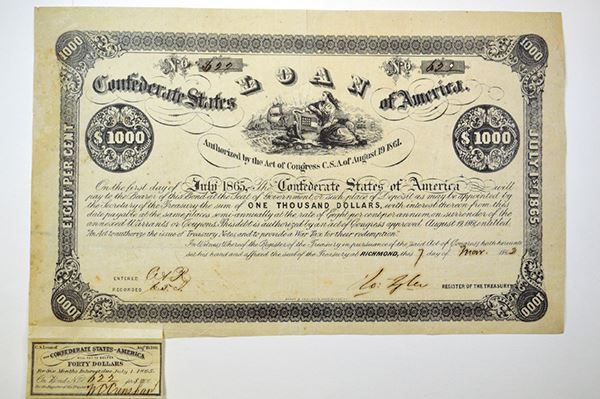 1000
1000
No. 622
No. 622
LOAN
Confederate States
of America.
$1000
$1000
EIGHT PER CENT
JULY 1st 1865
Authorized by the Act of Congress C.S.A. of August 19 1861.
On the first day of July 1865, The Confederate States of America will
pay to the Bearer of this Bond at the Seat of Government or such place of Deposit as may be appointed by
the Secretary of the Treasury the sum of ONE THOUSAND DOLLARS, with interest thereon from this
date payable at the same places semi-annually at the rate of Eight per cent per annum, on surrender of the
annexed Warrants or Coupons. This debt is authorized by an act of Congress approved August 19, 1861, entitled
"An Act to authorize the issue of Treasury Notes, and to provide a War Tax for their redemption."
In Witness Whereof the Register of the Treasury in pursuance of the said Act of Congress, hath hereunto
set his hand and affixed the seal of the Treasury at RICHMOND, this 7 day of Nov. 1862
ENTERED
RECORDED
Ro: Tyler
REGISTER OF THE TREASURY
1000
1000
CONFEDERATE STATES OF AMERICA
FORTY DOLLARS
For Six Months Interest due July 1. 1865.
On Bond No. 622 for $1000